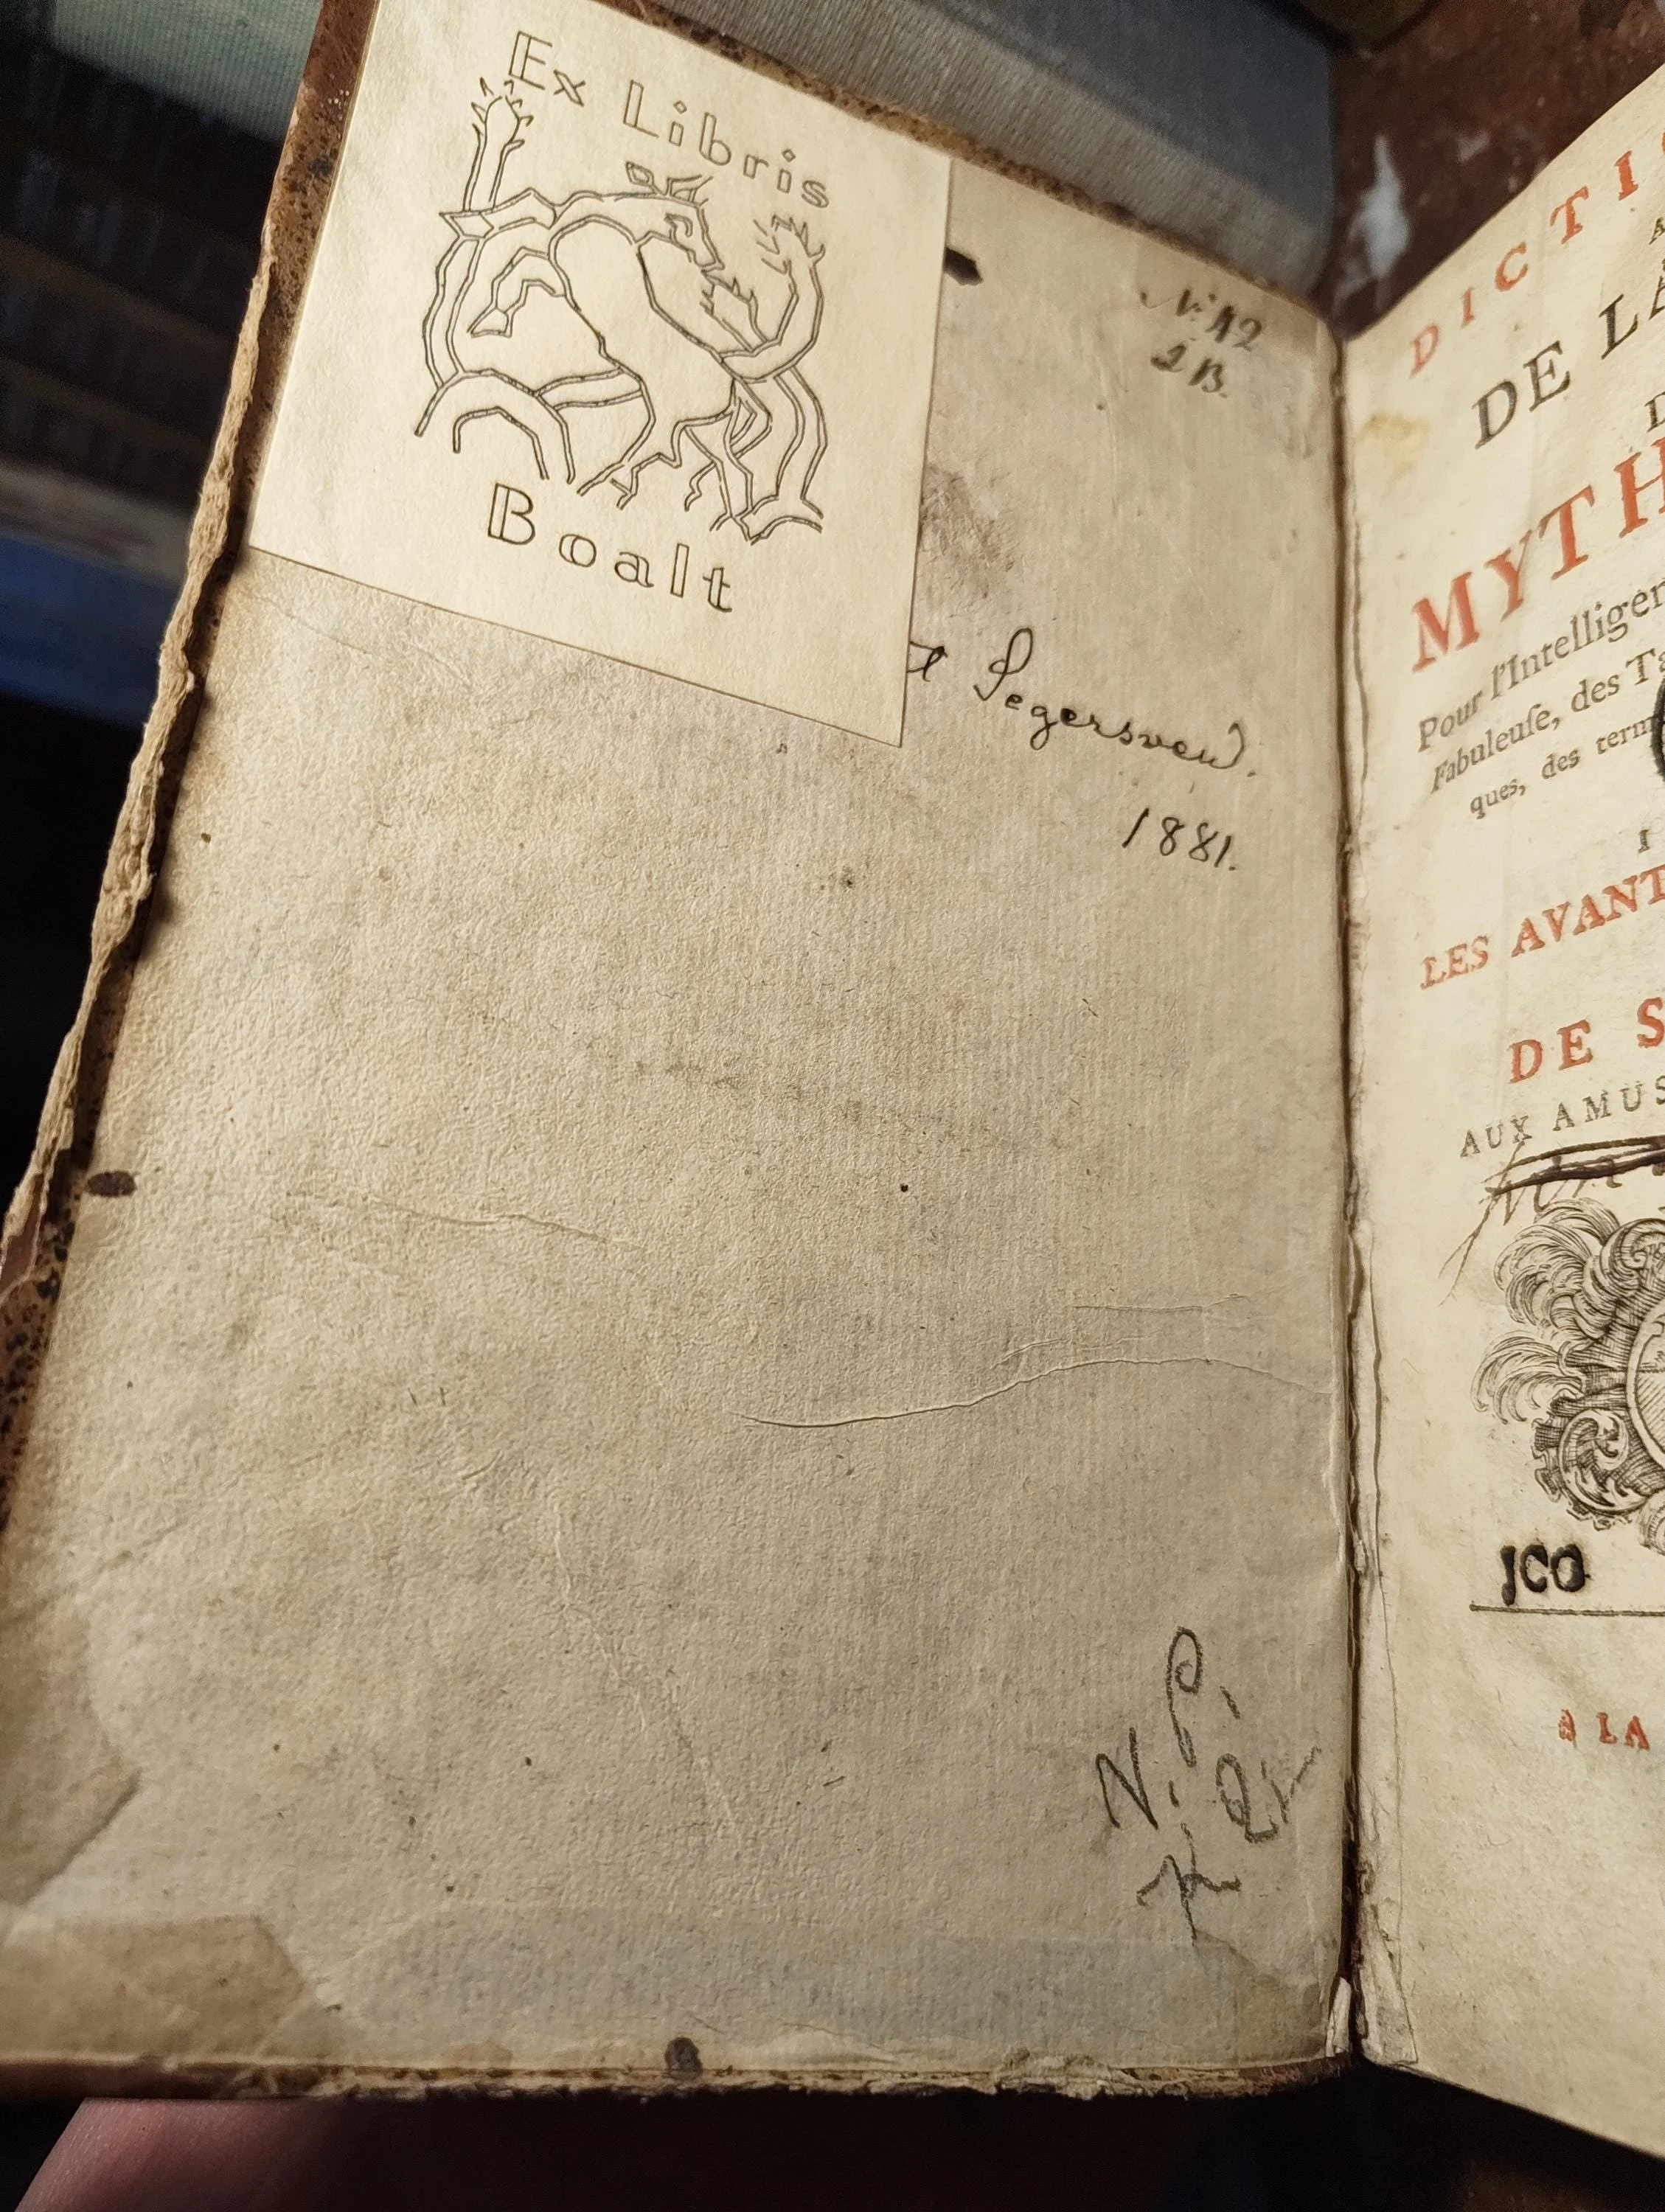 Ex Libris
Boalt
N: 12
1 B.
Segersven.
1881.
N. P.
DICTI
DE LA
MYTH
Pour l'Intelligen
Fabuleuſe, des Ta
ques, des term
LES AVANT
DE S
AUX AMUS
JCO
A LA